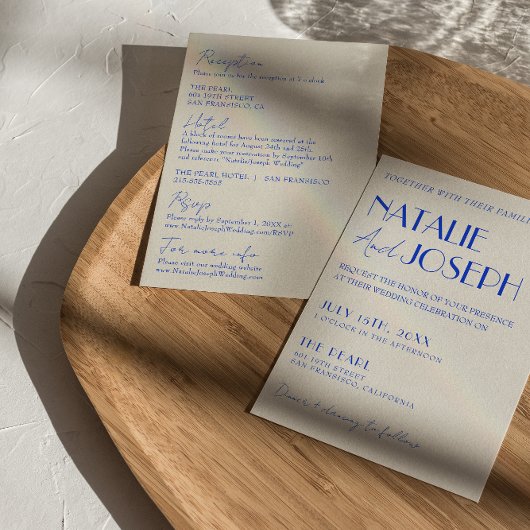 Reception
Please join us for the reception at 5 o'clock
THE PEARL
601 19TH STREET
SAN FRANSISCO, CA
Hotel
A block of rooms have been reserved at the
following hotel for August 24th and 25th.
Please make your reservation by September 10th
and reference "Natalie/Joseph Wedding"
THE PEARL HOTEL | SAN FRANSISCO
215-555-5555
Rsvp
Please reply by September 1, 20XX at:
www.NatalieJosephWedding.com/RSVP
For more info
Please visit our wedding website
www.NatalieJosephWedding.com
TOGETHER WITH THEIR FAMILI
NATALIE
And JOSEPH
REQUEST THE HONOR OF YOUR PRESENCE
AT THEIR WEDDING CELEBRATION ON
JULY 15TH, 20XX
1 O'CLOCK IN THE AFTERNOON
THE PEARL
601 19TH STREET
SAN FRANSISCO, CALIFORNIA
Dinner + dancing to follow